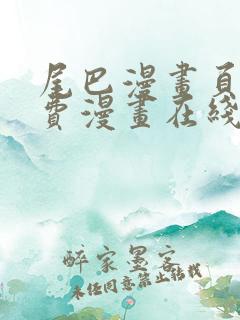 尾巴漫畫頁
費漫畫在綫
醉家墨客
未经同意禁止转载